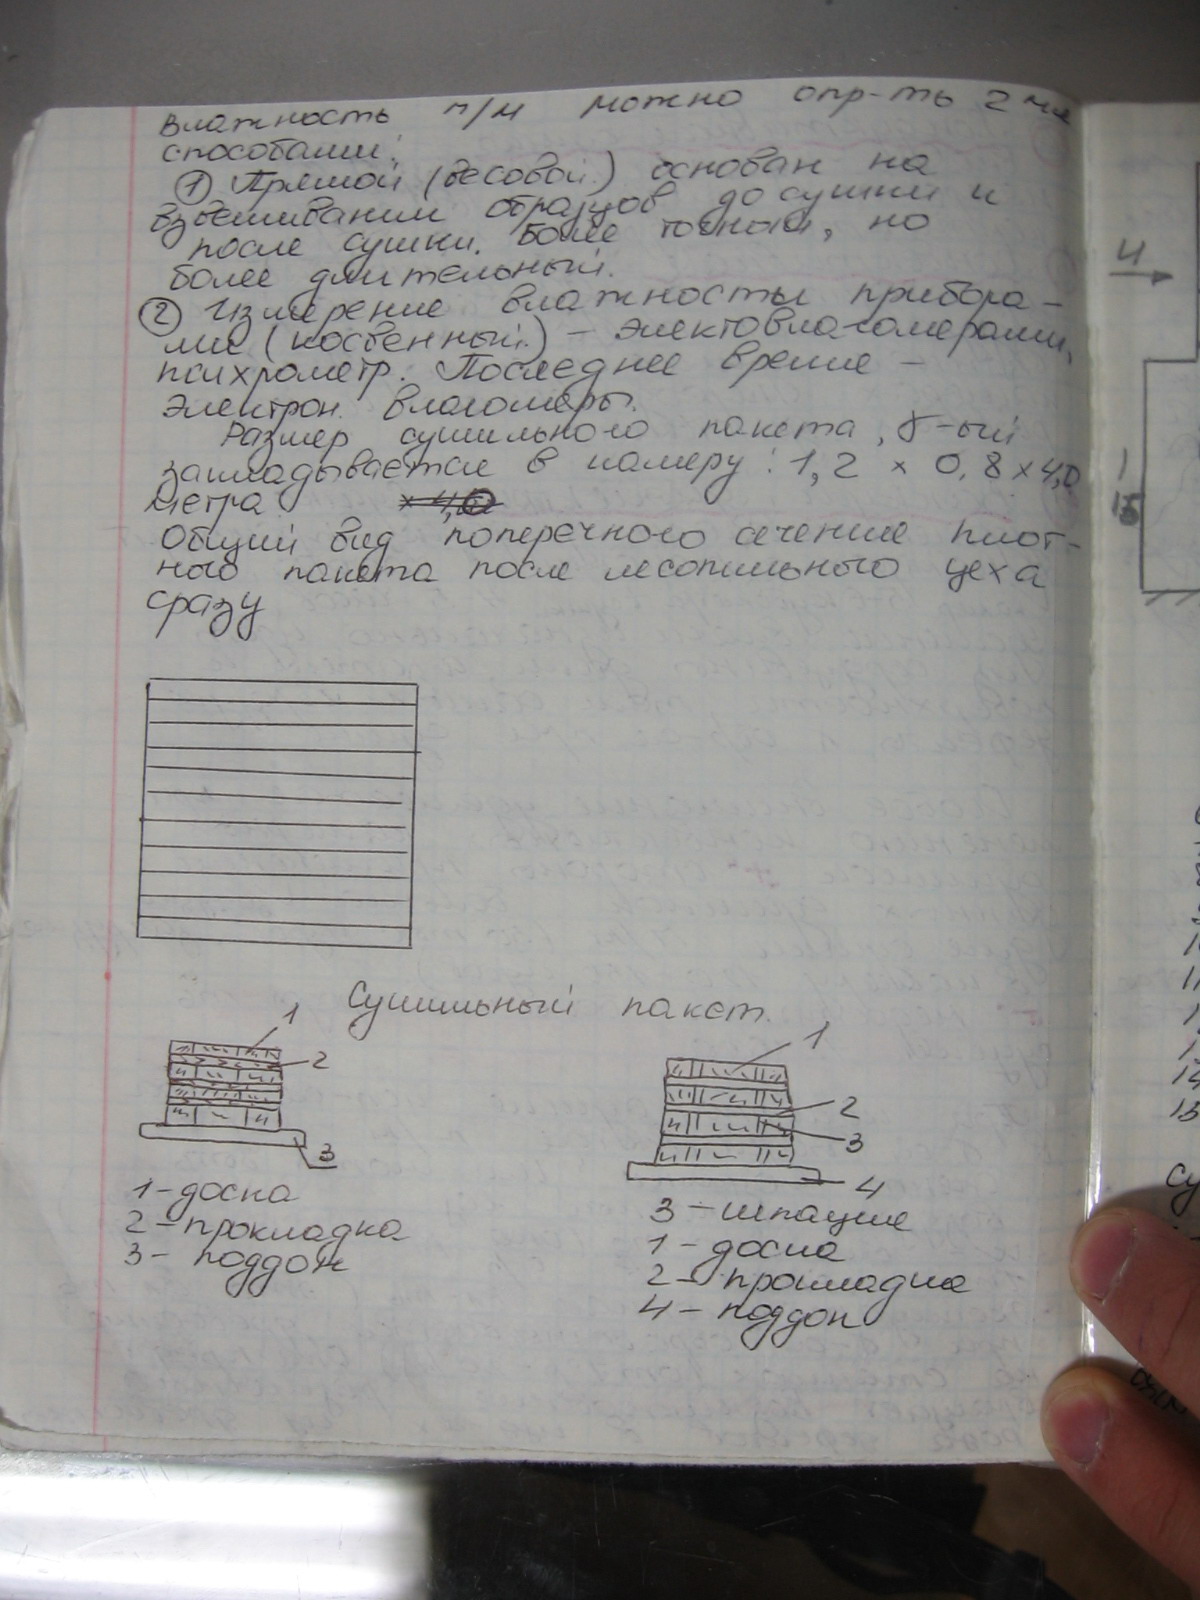 Влажность п/м можно опр-ть 2мя
способами:
① Прямой (весовой) основан на
взвешивании образцов до сушки и
после сушки. Более точный, но
более длительный.
② Измерение влажности прибора-
ми (косвенный) – электовлагомерами,
психрометр. Последнее время –
электрон. влагомеры.
Размер сушильного пакета,
закладывается в камеру: 1,2 x 0,8 x 4,0
метра x 4,0
Общий вид поперечного сечение плот-
ного пакета после лесопильного цеха
сразу
Сушильный пакет.
1
2
3
1 – доска
2 – прокладка
3 – поддон
1
2
3
4
3 – шпацие
1 – доска
2 – прокладка
4 – поддон
4
1
15
14
15
Су